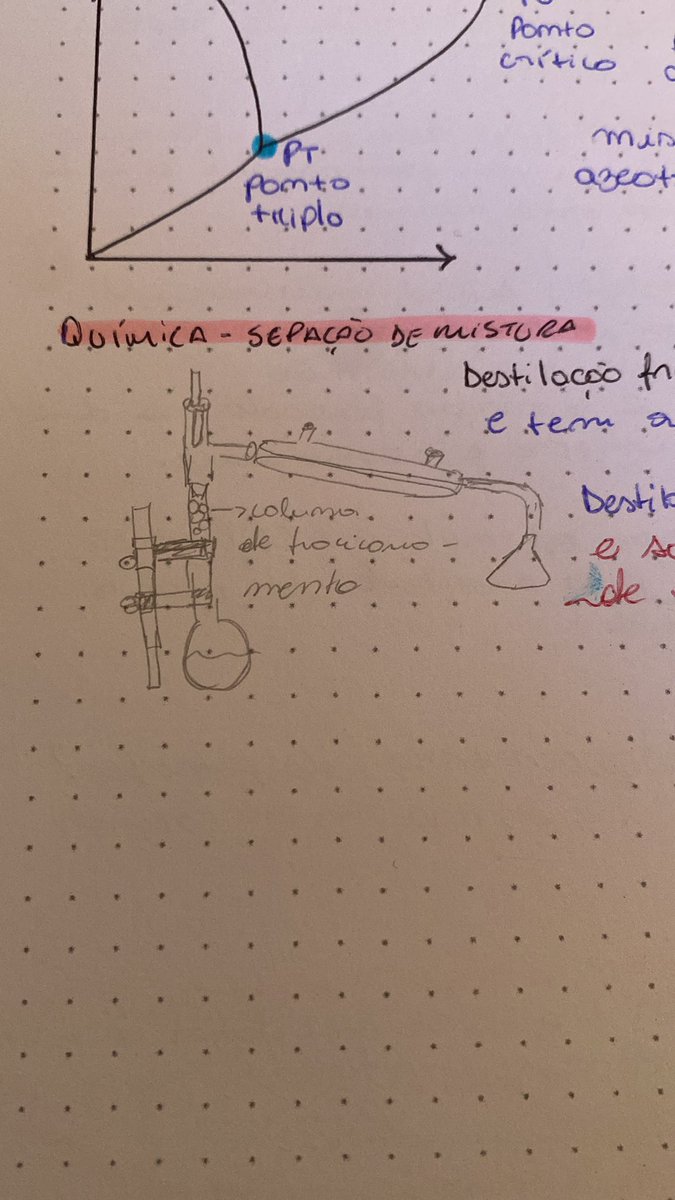 Ponto
crítico
PT
ponto
triplo
QUÍMICA - SEPAÇÃO DE MISTURA
Destilação
e tem a
coluna
de fracicona-
mento
e
de